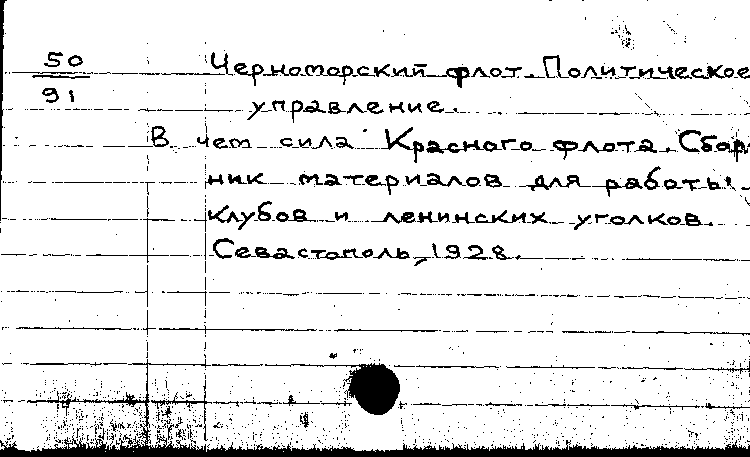 50
91
Черноморский флот. Политическое
управление.
В чем сила Красного флота. Сбор
ник материалов для работы
клубов и ленинских уголков.
Севастополь, 1928.